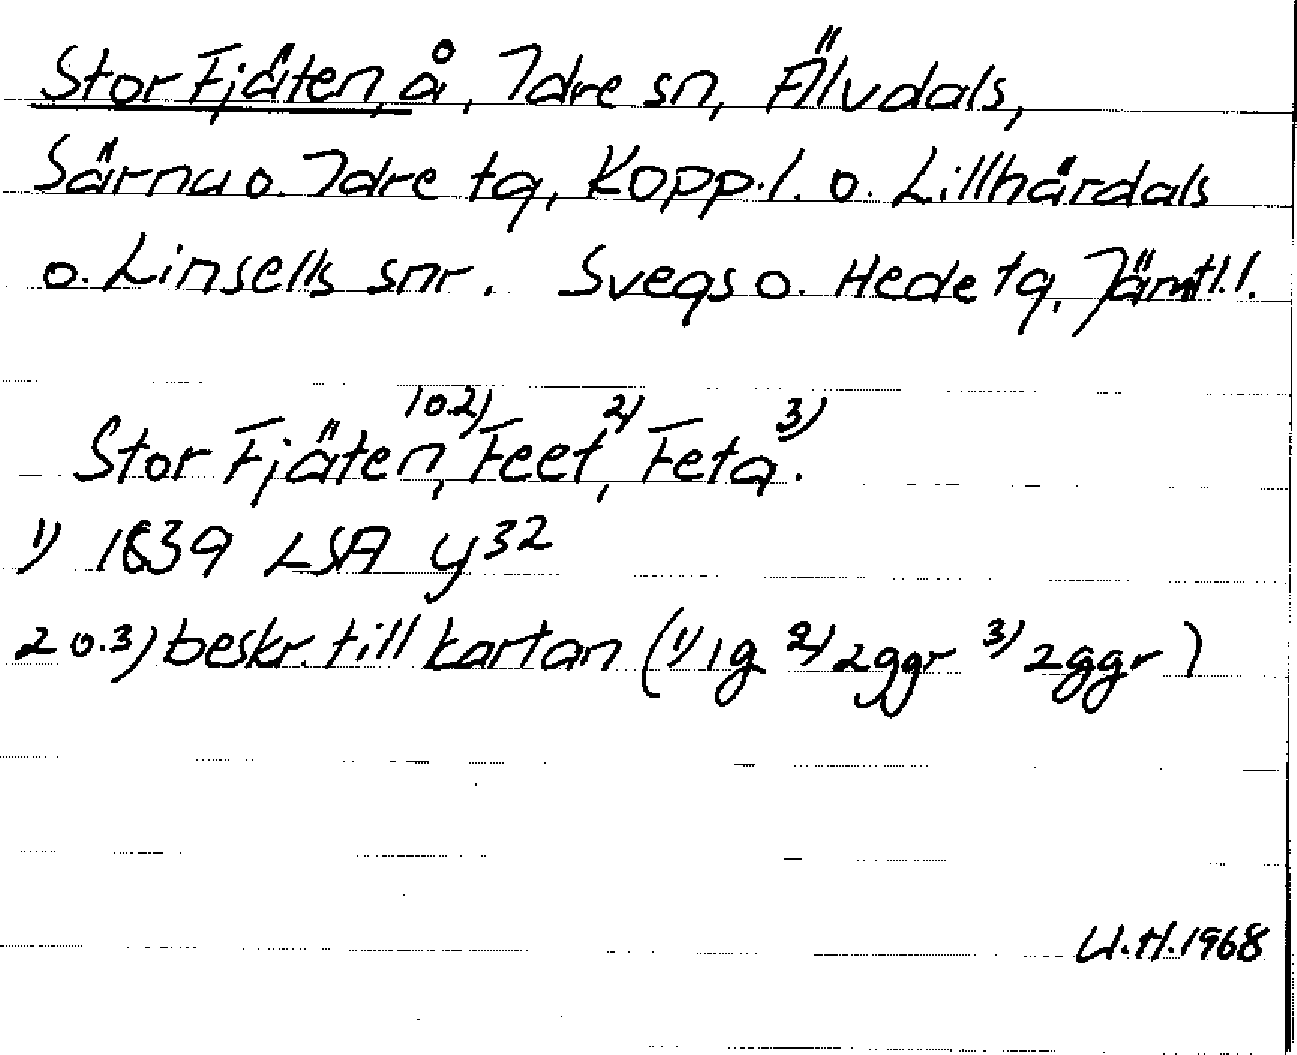 Stor Fjäten, å, Idre sn, Älvdals,
Särna o. Idre tg, Kopp. l. o. Lillhärdals
o. Linsells snr. Svegs o. Hede tg, Jämtl. l.
Stor Fjäten, 1 o. 2) Feet, 2) Feta. 3)
1) 1839 LSA y 32
2 o. 3) beskr. till kartan (1) 1g 2) 2ggr 3) 2ggr)
U.H. 1968